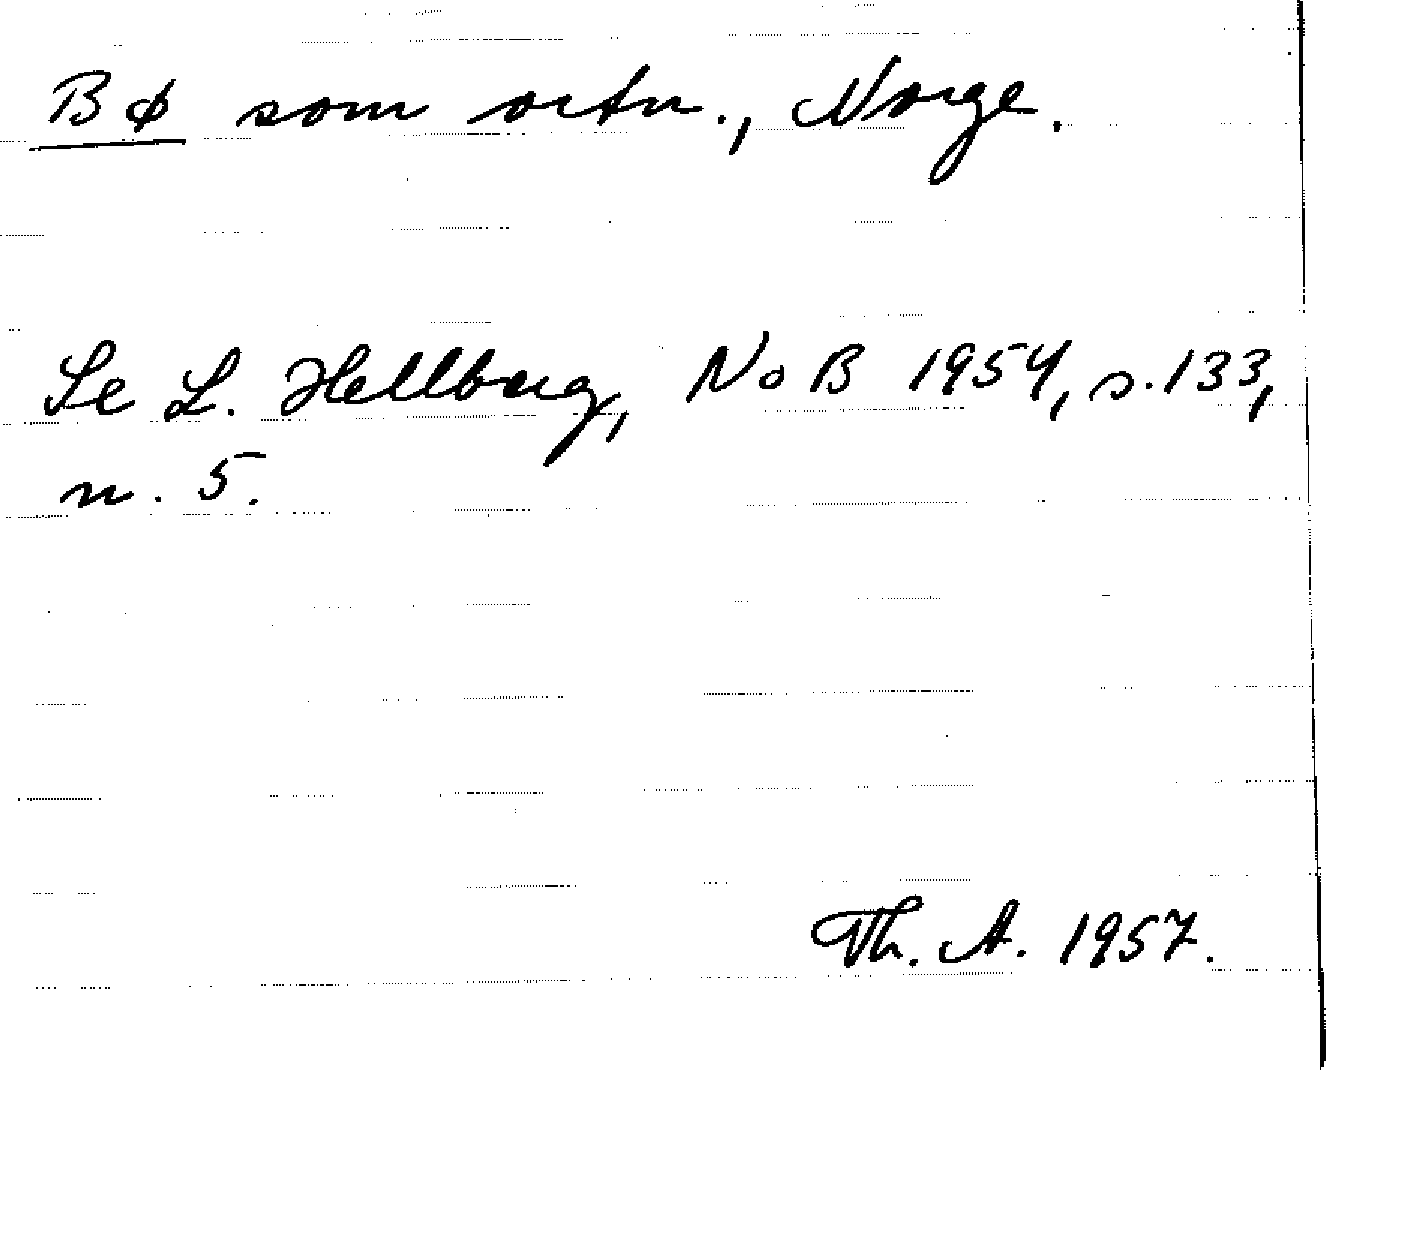 Bø som ortn., Norge.
Se L. Hellberg, NoB 1954, s. 133,
n. 5.
Th. A. 1957.